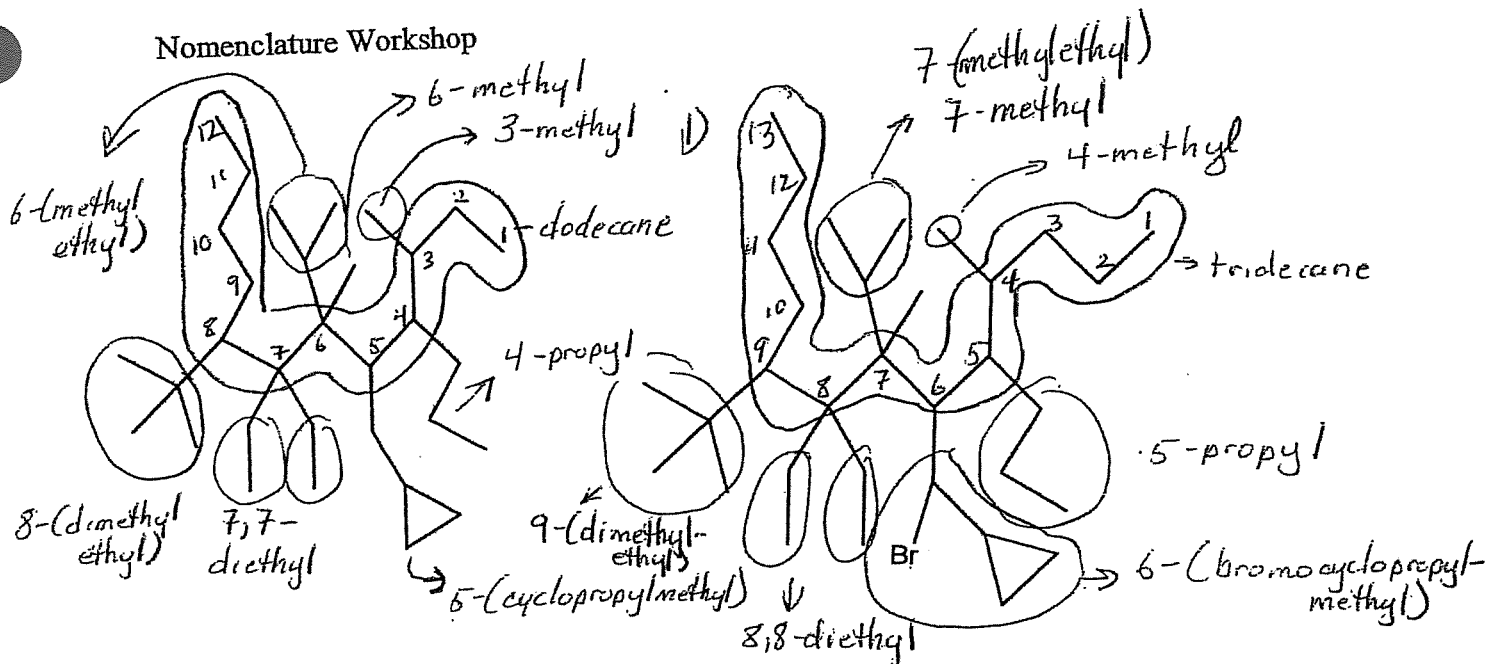 Nomenclature Workshop
6-methyl
3-methyl
6-(methyl
ethyl)
12
11
10
9
8
7
6
5
4
3
2
1
-dodecane
4-propyl
8-(dimethyl
ethyl)
7,7-
diethyl
5-(cyclopropylmethyl)
1)
7-(methylethyl)
7-methyl
4-methyl
13
12
11
10
9
8
7
6
5
4
3
2
1
tridecane
5-propyl
9-(dimethyl-
ethyl)
8,8-diethyl
Br
6-(bromocyclopropyl-
methyl)